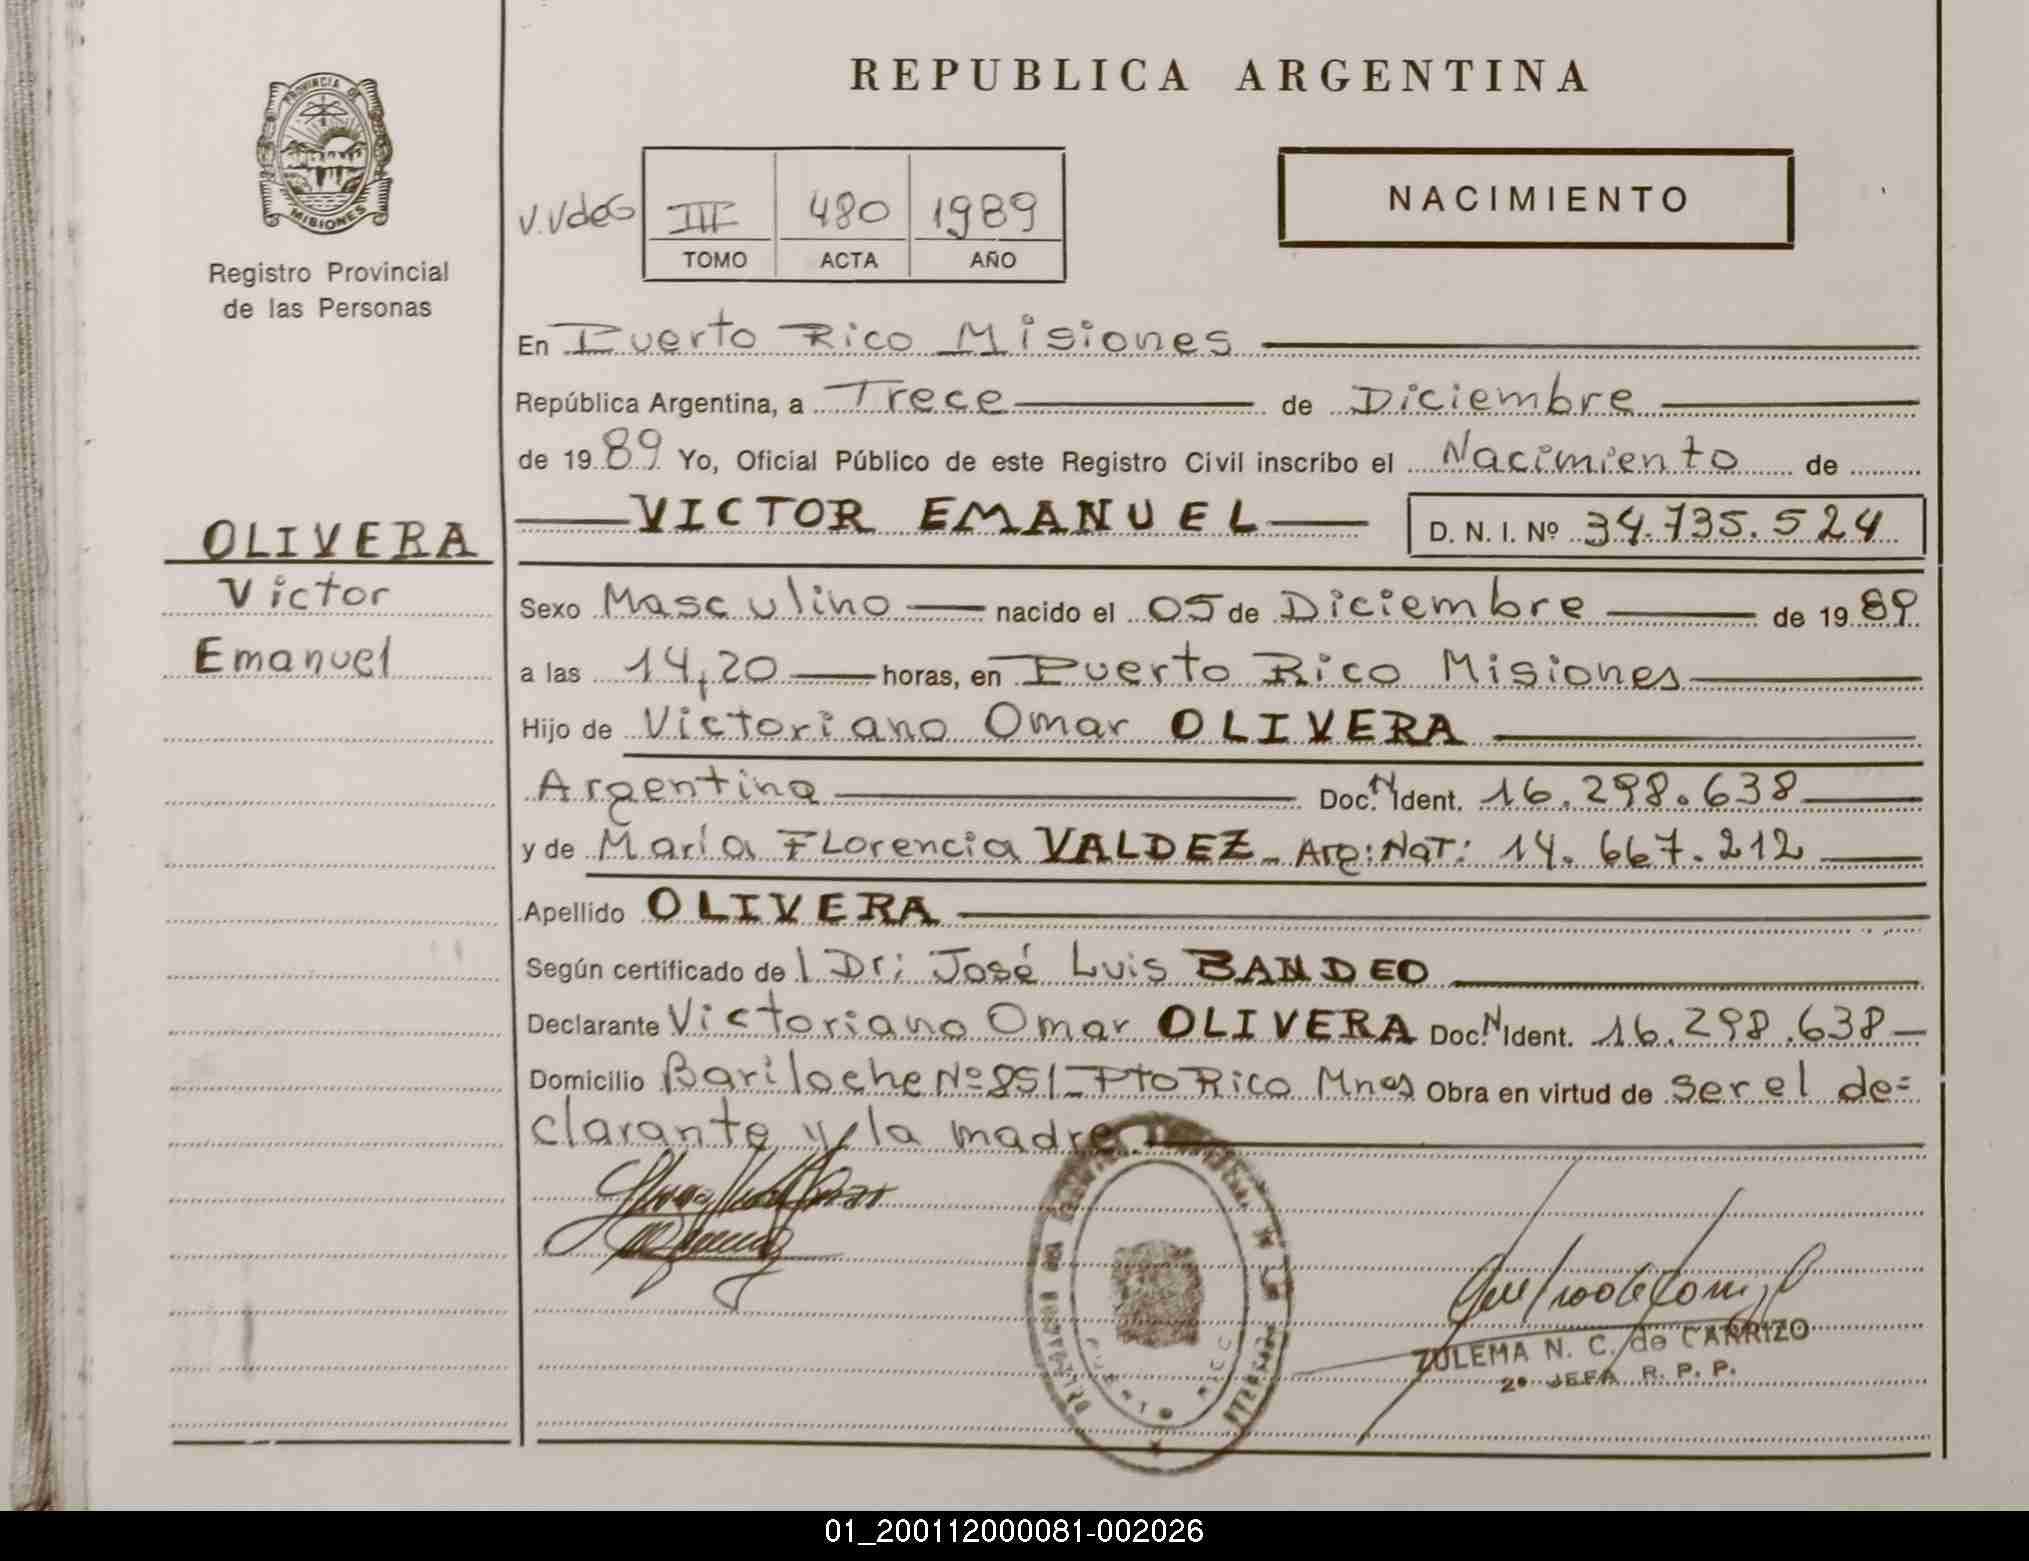 REPUBLICA ARGENTINA
PROVINCIA DE
MISIONES
Registro Provincial
de las Personas
V.VdeG III 480 1989
TOMO ACTA AÑO
NACIMIENTO
En Puerto Rico Misiones
República Argentina, a Trece de Diciembre
de 1989 Yo, Oficial Público de este Registro Civil inscribo el Nacimiento de
VICTOR EMANUEL D. N. I. Nº 34.735.524
OLIVERA
Victor
Emanuel
Sexo Masculino nacido el 05 de Diciembre de 1989
a las 14,20 horas, en Puerto Rico Misiones
Hijo de Victoriano Omar OLIVERA
Argentina Doc. N Ident. 16.298.638
y de María Florencia VALDEZ - Arg: Nat: 14.667.212
Apellido OLIVERA
Según certificado de l Dr: José Luis BANDEO
Declarante Victoriano Omar OLIVERA Doc. N Ident. 16.298.638
Domicilio Bariloche Nº 851 - Pto Rico Mnes Obra en virtud de ser el de=
clarante y la madre
ZULEMA N. C. de CARRIZO
2º JEFA R. P. P.
01_200112000081-002026